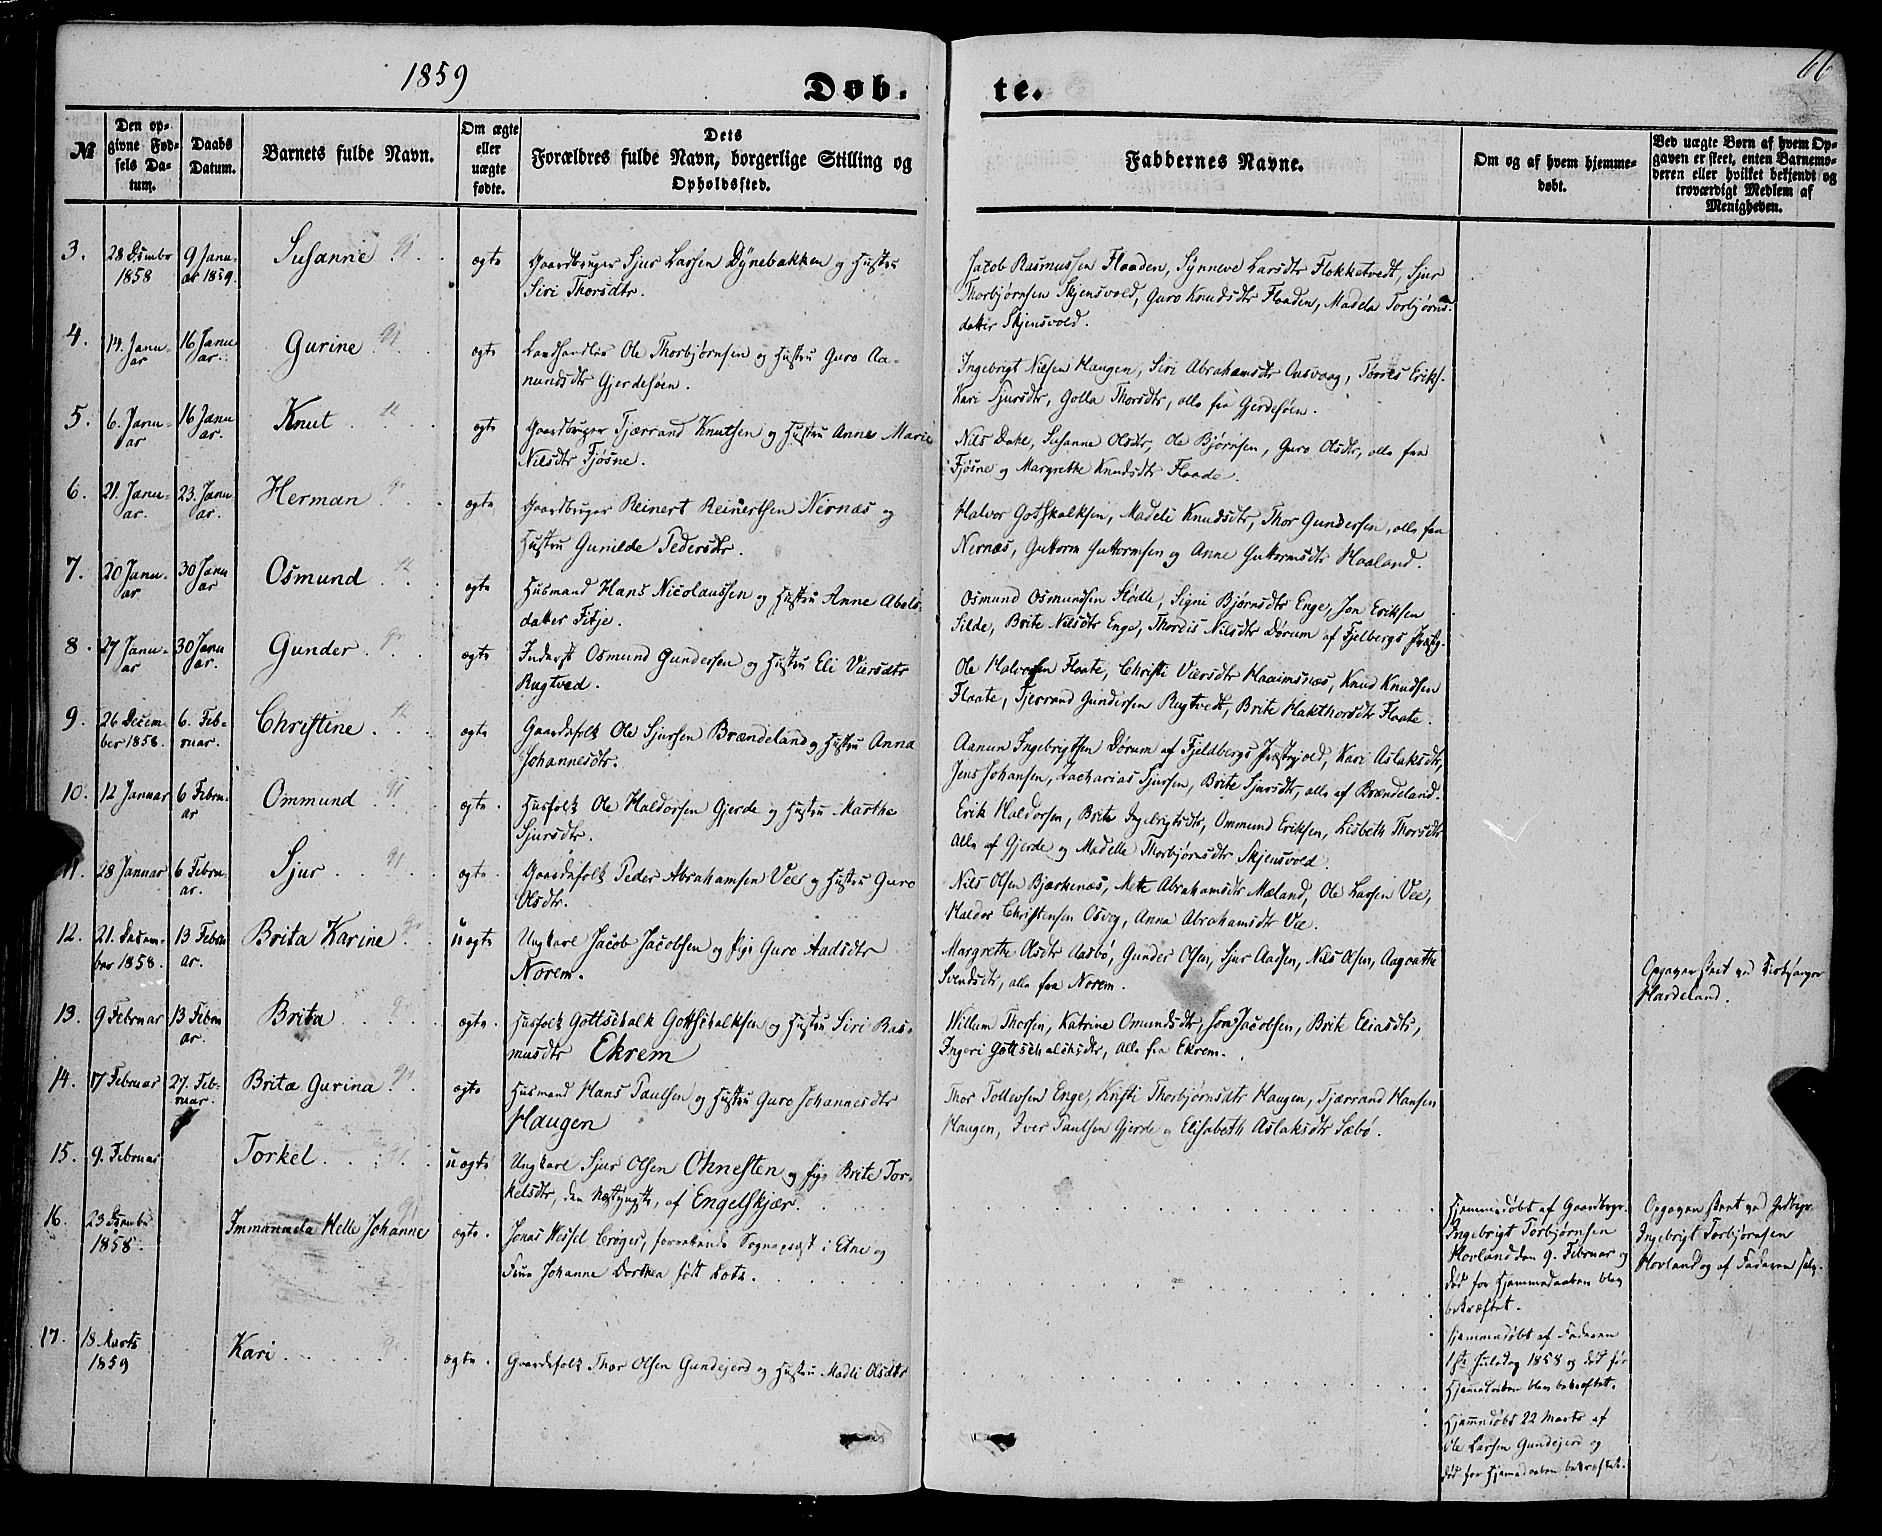 1859
Døb-
te.
66
№
Den op-
givne Fød-
sels Da-
tum.
Daabs
Datum.
Barnets fulde Navn.
Om ægte
eller
uægte
fødte.
Dets
Forældres fulde Navn, borgerlige Stilling og
Opholdssted.
Faddernes Navne.
Om og af hvem hjemme-
døbt.
Ved uægte Børn af hvem Op-
gaven er skeet, enten Barnemo-
deren eller hvilket bekjendt og
troværdigt Medlem af
Menigheden.
3. 28 Dsmbr 9 Janu- Susanne ægte Gaardbruger Sjur Larsen Dynebakken og Hustru
1858 ar 1859. Siri Thorsdtr.
Jacob Rasmussen Flaaden, Synneve Larsdtr Flokketvedt, Sjur
Thorbjørnsen Skjensvold, Guro Knudsdtr Flaaden, Madela Torbjørns-
datter Skjensvold.
4. 14. Janu- 16 Janu Gurine ægte Landhandler Ole Thorbjørnsen og Hustru Guro Aa-
ar ar. nundsdtr Gjerdesøen.
Ingebrigt Nilsen Haugen, Siri Abrahamsdtr Tørres Eriks.
Kari Sjursdtr, Golla Thorsdtr, alle fra Gjerdesøen.
5. 6. Janu- 16 Janu Knut ægte Gaardbruger Tjærrand Knutsen og Hustru Anne Marie
ar ar. Nilsdtr Fjøsne.
Nils Dahl, Susanne Olsdtr, Ole Bjørnsen, Guro Olsdtr, alle fra
Fjøsne og Margrethe Knudsdtr Flaade.
6. 21. Janu- 23. Janu Herman ægte Gaardbruger Reinert Reinertsen Nernæs og
ar. ar. Hustru Gunilde Pedersdtr.
Halvor Gotskalksen, Madeli Knudsdtr, Thor Gundersen, alle fra
Nernæs, Guttorm Guttormsen og Anne Guttormsdtr Haaland.
7. 20 Janu- 30 Janu Osmund ægte Husmand Hans Nicolaussen og Hustru Anne Abels-
ar ar datter Fitje.
Osmund Osmundsen Stødle, Signi Bjørnsdtr Enge, Jon Eriksen
Silde, Brite Nilsdtr Enge, Thordis Nilsdtr Dørum af Fjelbergs Præstg.
8. 27 Janu- 30 Janu Gunder ægte Inderst Osmund Gundersen og Hustru Eli Viersdtr
ar ar. Rugtved.
Ole Halvorsen Flaate, Christi Viersdtr Haaimsnæs, Knud Knudsen
Flaate, Tjerrand Gundersen Rugtvedt, Brite Hakthorsdtr Flaate.
9. 26 Decem- 6. Feb- Christine ægte Gaardefolk Ole Sjursen Brændeland og Hustru Anna
ber 1858. ruar. Johannesdtr.
Aanun Ingebrigtsen Dørum af Fjeldbergs Præstegjeld, Kari Aslaksdtr,
Jens Johansen, Zacharias Sjursen, Brite Sjursdtr, alle af Brændeland.
10. 12 Januar 6 Febru- Ommund ægte. Husfolk Ole Haldorsen Gjerde og Hustru Marthe
ar Sjursdtr.
Erik Haldorsen, Brite Ingebrigtsdtr, Ommund Eriksen, Lisbeth Thorsdtr
Alle af Gjerde og Madelle Thorbjørnsdtr Skjensvold.
11. 28 Januar 6 Febru- Sjur ægte. Gaardefolk Peder Abrahamsen Vee og Hustru Guro
ar. Olsdtr.
Nils Olsen Bjærkenæs, Mete Abrahamsdtr Mæland, Ole Larsen Vee,
Haldor Christensen Osvog, Anna Abrahamsdtr Vee.
12. 21. Decem- 13 Febru Brita Karine uægte Ungkarl Jacob Jacobsen og Pige Guro Aadsdtr
ber 1858. ar. Norem.
Margrethe Olsdtr Aasbø, Gunder Olsen, Sjur Aasen, Nils Olsen, Aagoathe
Svendsdtr, alle fra Norem.
Opgaven skeet ved Kirkesanger
Hardeland.
13. 9 Februar 13 Febru Brita ægte. Husfolk Gottschalk Gottschalksen og Hustru Siri Ras-
ar. musdtr Ekrem
Willum Thorsen, Katrine Omundsdtr, Jon Jacobsen, Brite Eliasdtr,
Ingeri Gottschalksdtr, Alle fra Ekrem.
14. 17 Februar 27. Feb- Brita Gurina ægte Husmand Hans Paulsen og Hustru Guro Johannesdtr
ruar. Haugen
Thor Tollevsen Enge, Kristi Thorbjørnsdtr Haugen, Tjærrand Hansen
Haugen, Iver Paulsen Gjerde og Elisabeth Aslaksdtr Sæbø.
15. 9. Februar Torkel uægte Ungkarl Sjur Olsen Ohnesten og Pige Brite Tor-
kelsdtr, den af Engelskjær.
Hjemmedøbt af Gaardbrgr.
Ingebrigt Torbjørnsen
Hovland den 9. Februar og
død før Hjemmedaaben blev
bekræftet.
Opgaven skeet ved Gdbrgr
Ingebrigt Torbjørnsen
Hovland og af Faderen selv.
16. 23 Dsmbr Immanuela Helle Johanne ægte. Jonas Wessel Crøger, forrettende Sognepræst i Etne og
1858. Frue Johanne Dorthea født Kote.
Hjemmedøbt af Faderen
1ste Juledag 1858 og død før
Hjemedaaben blev bekræftet.
17. 18. Marts Kari ægte. Gaardefolk Thor Olsen Gundejerd og Hustru Madli Olsdtr
1859
Hjemmedøbt 22 Marts af
Ole Larsen Gundejerd og
død før Hjemedaaben bekræftet.